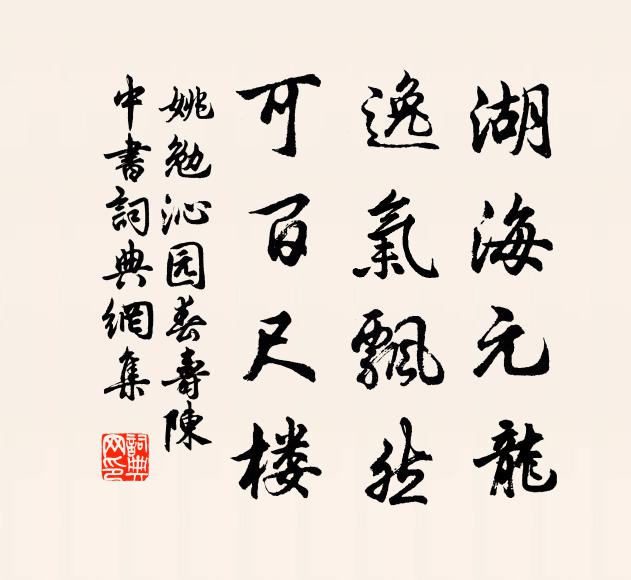 湖海元龍
逸氣飄然
可百尺楼
姚勉沁园春壽陳
中書詞典網集
詞典网印